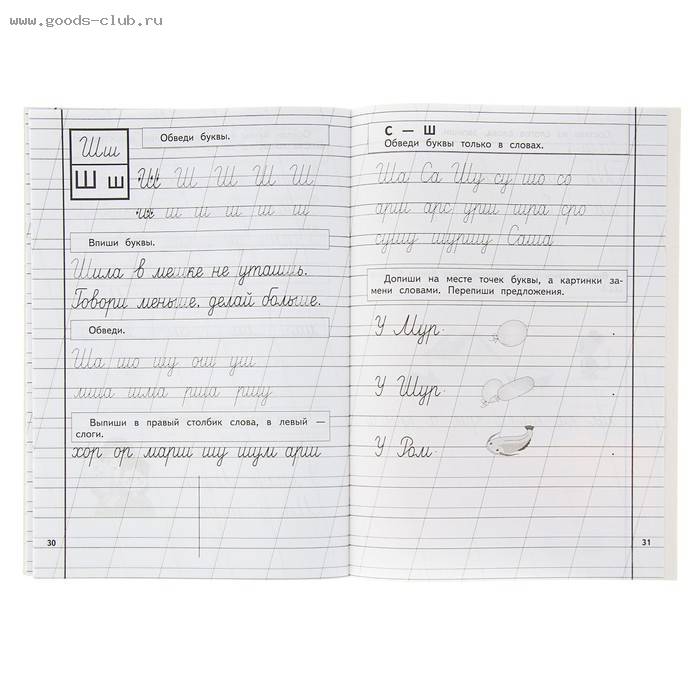 www.goods-club.ru
Шш
Ш ш
Обведи буквы.
Ш Ш Ш Ш Ш
ш ш ш ш ш ш
Впиши буквы.
Шила в мешке не утаишь.
Говори меньше, делай больше.
Обведи.
Ша шо шу ош уш
Выпиши в правый столбик слова, в левый —
слоги.
хор ор марш шу шум арш
30
С — Ш
Обведи буквы только в словах.
Ша Са Шу су шо со
арш арс урш шра сро
сушу шуршу Саша
Допиши на месте точек буквы, а картинки за-
мени словами. Перепиши предложения.
У Мур. .
У Шур. .
У Ром. .
31